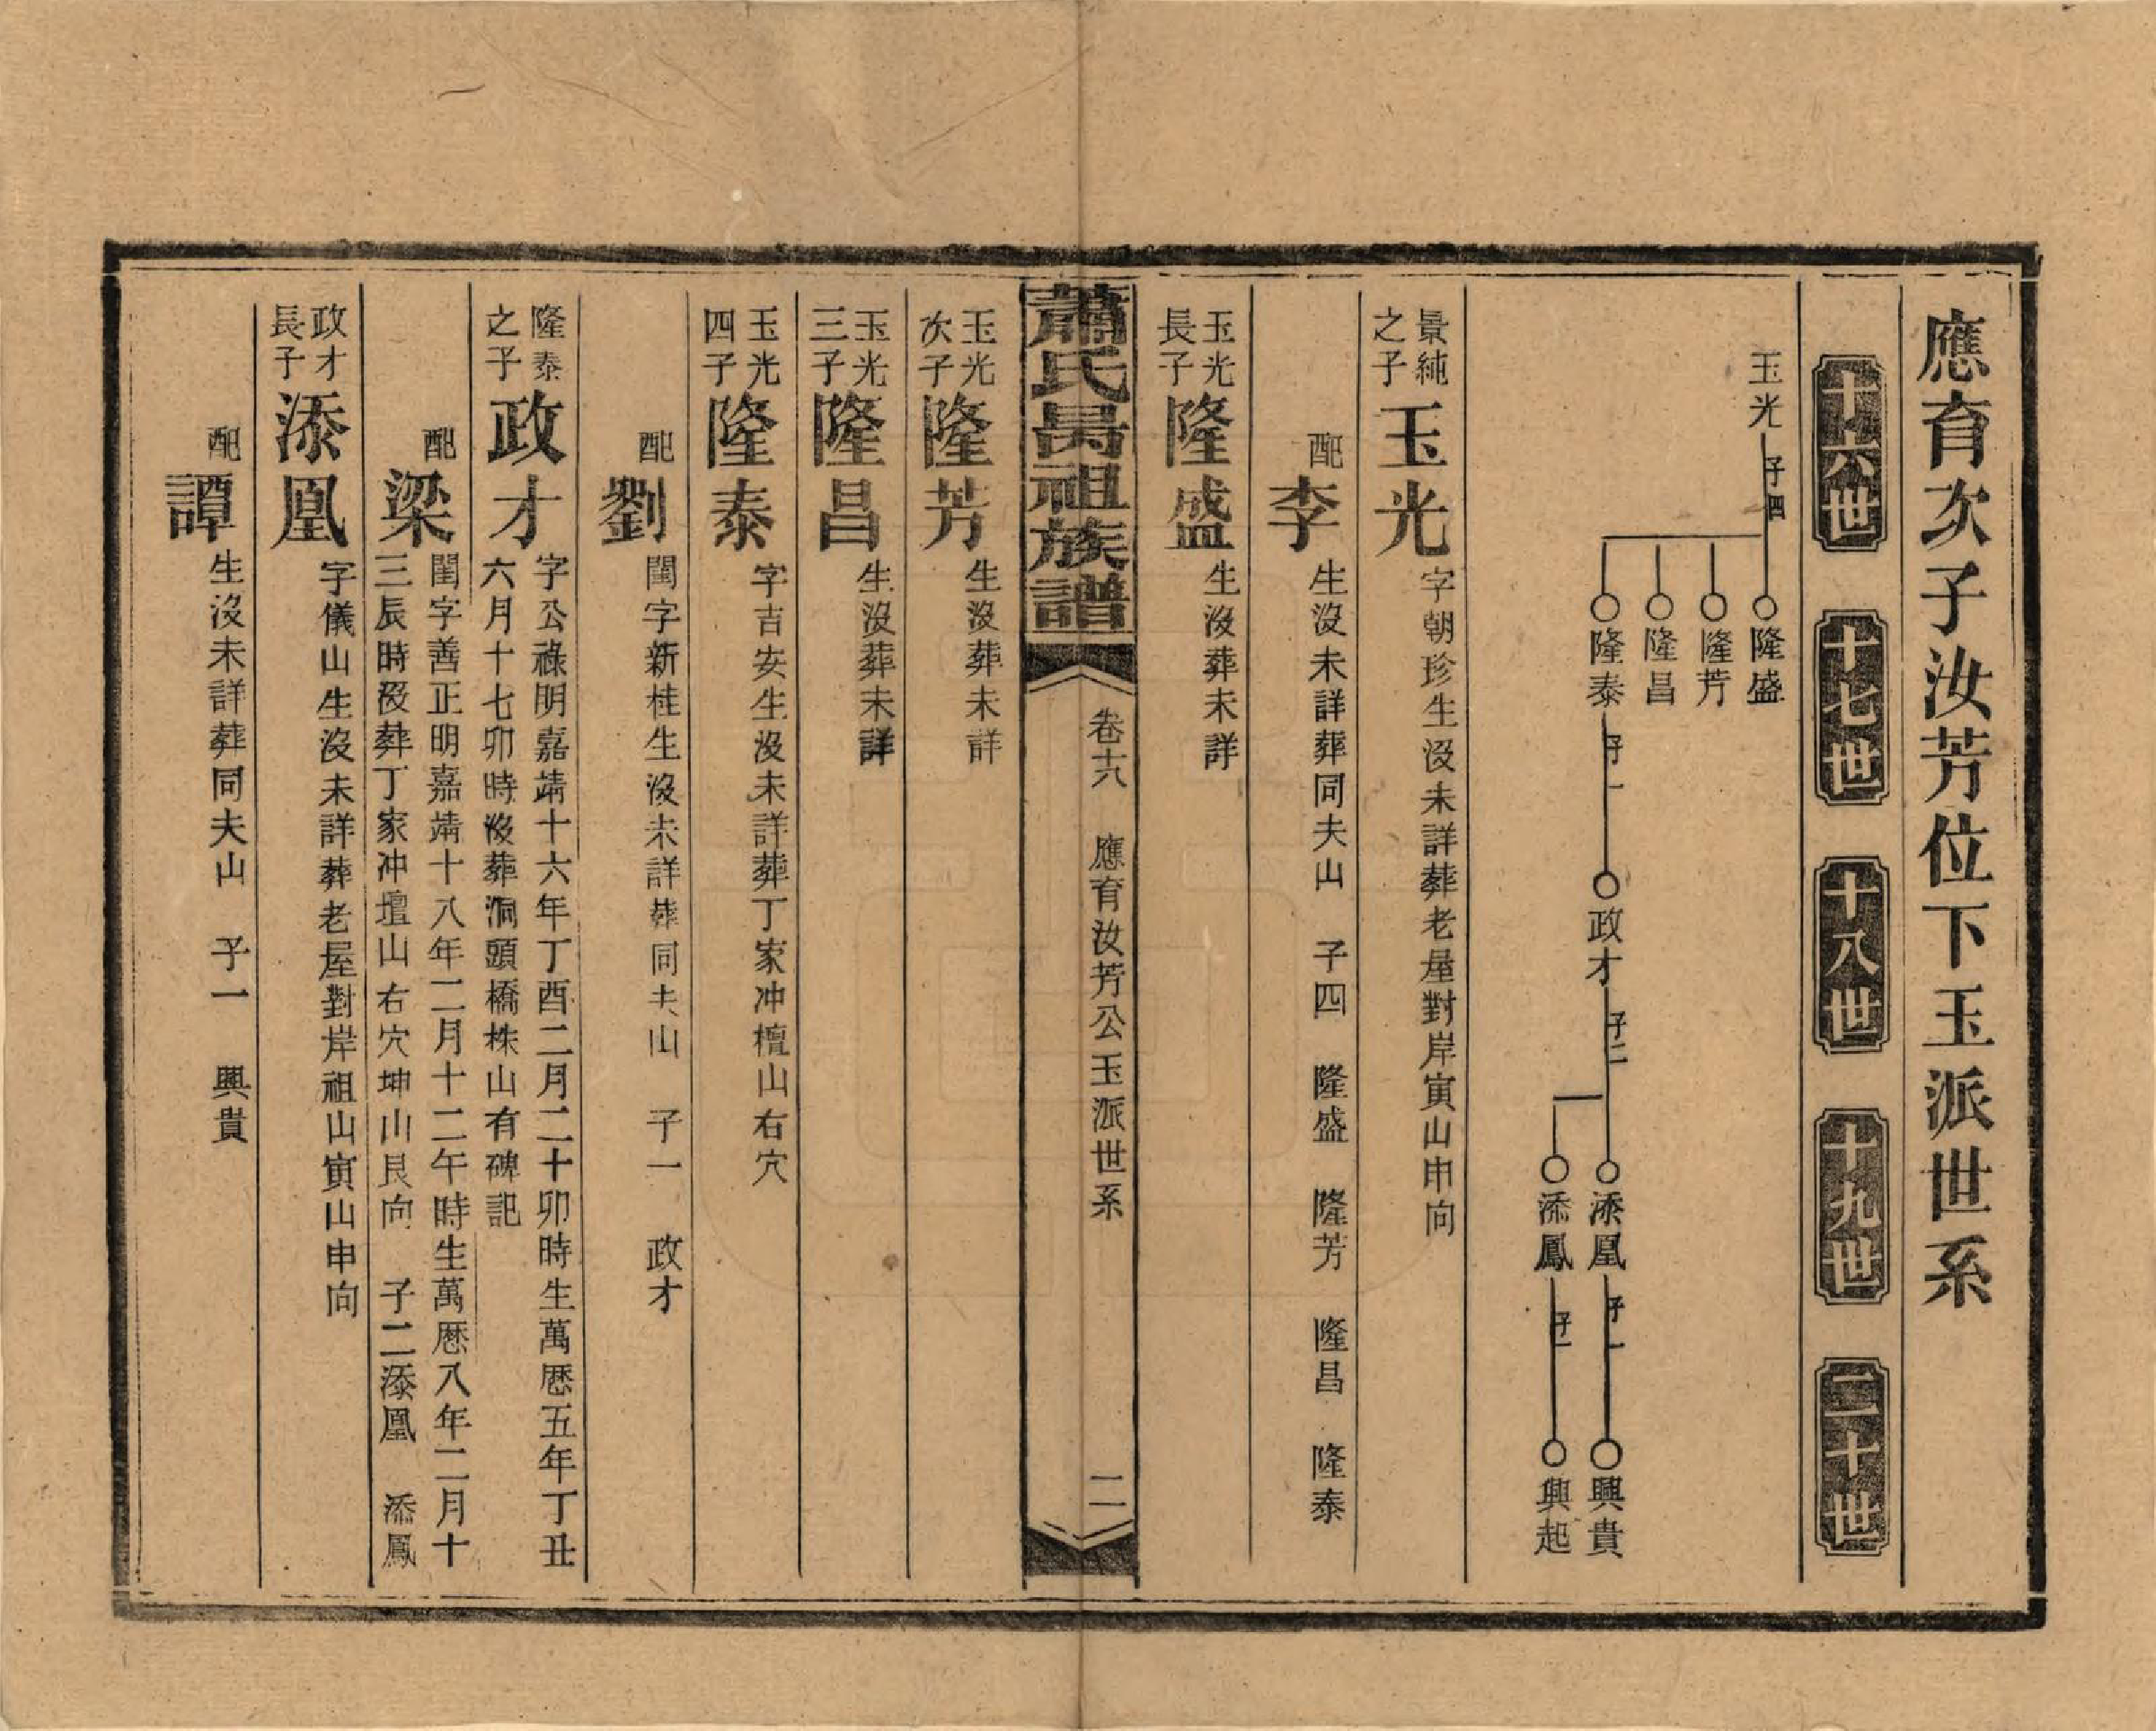 應育次子汝芳位下玉派世系
十六世
十七世
十八世
十九世
二十世
玉光 子四
隆盛
隆芳
隆昌
隆泰 子一
政才 子二
添凰 子一
興貴
添鳳 子一
興起
景純之子 玉光 字朝珍生沒未詳葬老屋對岸寅山申向
配 李 生沒未詳葬同夫山 子四 隆盛 隆芳 隆昌 隆泰
玉光長子 隆盛 生沒葬未詳
蕭氏昺祖族譜 卷十六 應育汝芳公玉派世系 二
玉光次子 隆芳 生沒葬未詳
玉光三子 隆昌 生沒葬未詳
玉光四子 隆泰 字吉安生沒未詳葬丁家冲檀山右穴
配 劉 閨字新桂生沒未詳葬同夫山 子一 政才
隆泰之子 政才 字公祿明嘉靖十六年丁酉二月二十卯時生萬曆五年丁丑
六月十七卯時沒葬洞頭橋株山有碑記
配 梁 閨字善正明嘉靖十八年二月十二午時生萬曆八年二月十
三辰時沒葬丁家冲壇山右穴坤山艮向 子二添凰 添鳳
政才長子 添凰 字儀山生沒未詳葬老屋對岸祖山寅山申向
配 譚 生沒未詳葬同夫山 子一 興貴